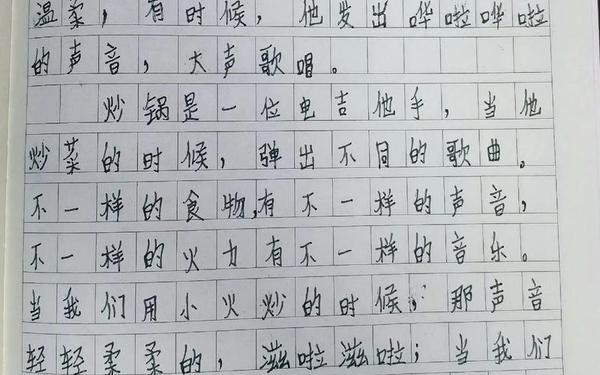 温柔，有时候，他发出哗啦哗啦
的声音，大声歌唱。
炒锅是一位电吉他手，当他
炒菜的时候，弹出不同的歌曲。
不一样的食物，有不一样的声音，
不一样的火力有不一样的音乐。
当我们用小火炒的时候，那声音
轻轻柔柔的，滋啦滋啦；当我们